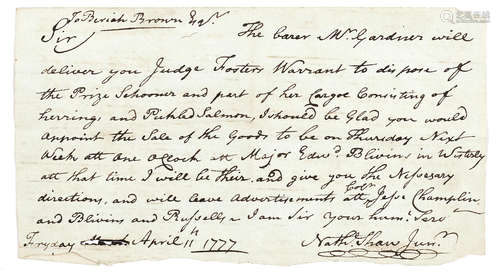 To Beriah Brown Esqr.
Sir The barer Mr. Gardner will
deliver you Judge Fosters Warrant to dispose of
the Prize Schooner and part of her Cargoe Consisting of
herring, and Pickled Salmon, I should be Glad you would
Appoint the Sale of the Goods to be on Thursday Next
Week att One OClock att Major Edwd. Blivins in Westerly
att that time I will be their and give you the Nessesary
directions, and will leave Advertisements att Jesse Champlin
and Blivins and Russells - I am Sir your humb. Servt.
Fryday April 11 1777 Nathl. Shaw Junr.